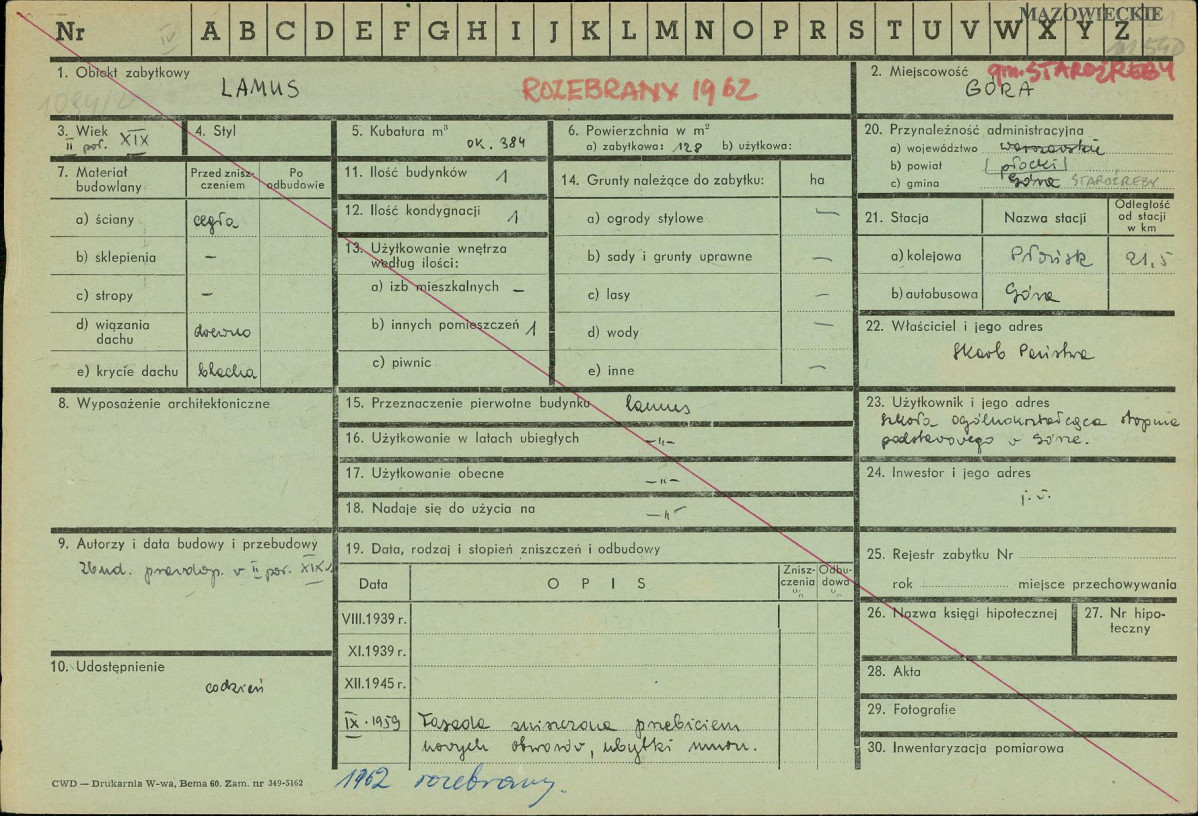 MAZOWIECKIE
Nr IV A B C D E F G H I J K L M N O P R S T U V W X Y Z
1. Obiekt zabytkowy
LAMUS
ROZEBRANY 1962
2. Miejscowość gm. STAROŹREBY
GÓRA
3. Wiek
II poł. XIX
4. Styl
5. Kubatura m³
ok. 384
6. Powierzchnia w m²
a) zabytkowa: 128 b) użytkowa:
20. Przynależność administracyjna
a) województwo warszawskie
b) powiat płocki
c) gmina Góra STAROŹREBY
7. Materiał budowlany
Przed zniszczeniem
Po odbudowie
a) ściany cegła
b) sklepienia –
c) stropy –
d) wiązania dachu drewno
e) krycie dachu blacha
11. Ilość budynków 1
12. Ilość kondygnacji 1
13. Użytkowanie wnętrza
według ilości:
a) izb mieszkalnych –
b) innych pomieszczeń 1
c) piwnic
14. Grunty należące do zabytku: ha
a) ogrody stylowe –
b) sady i grunty uprawne –
c) lasy –
d) wody –
e) inne –
21. Stacja
Nazwa stacji
Odległość od stacji w km
a) kolejowa Płońsk 21,5
b) autobusowa Góra
22. Właściciel i jego adres
Skarb Państwa
8. Wyposażenie architektoniczne
15. Przeznaczenie pierwotne budynku lamus
16. Użytkowanie w latach ubiegłych –"–
17. Użytkowanie obecne –"–
18. Nadaje się do użycia na –"–
23. Użytkownik i jego adres
szkoła ogólnokształcąca stopnia
podstawowego w Górze.
24. Inwestor i jego adres
j. w.
9. Autorzy i data budowy i przebudowy
zbud. prawdop. w II poł. XIX w
19. Data, rodzaj i stopień zniszczeń i odbudowy
Data
OPIS
Zniszczenia %
Odbudowa %
VIII.1939 r.
XI.1939 r.
XII.1945 r.
IX. 1959 Fasada zniszczona przebiciem
nowych otworów, ubytki muru.
1962 rozebrany.
25. Rejestr zabytku Nr
rok miejsce przechowywania
26. Nazwa księgi hipotecznej
27. Nr hipoteczny
10. Udostępnienie
codzień
28. Akta
29. Fotografie
30. Inwentaryzacja pomiarowa
CWD — Drukarnia W-wa, Bema 60. Zam. nr 349-5162